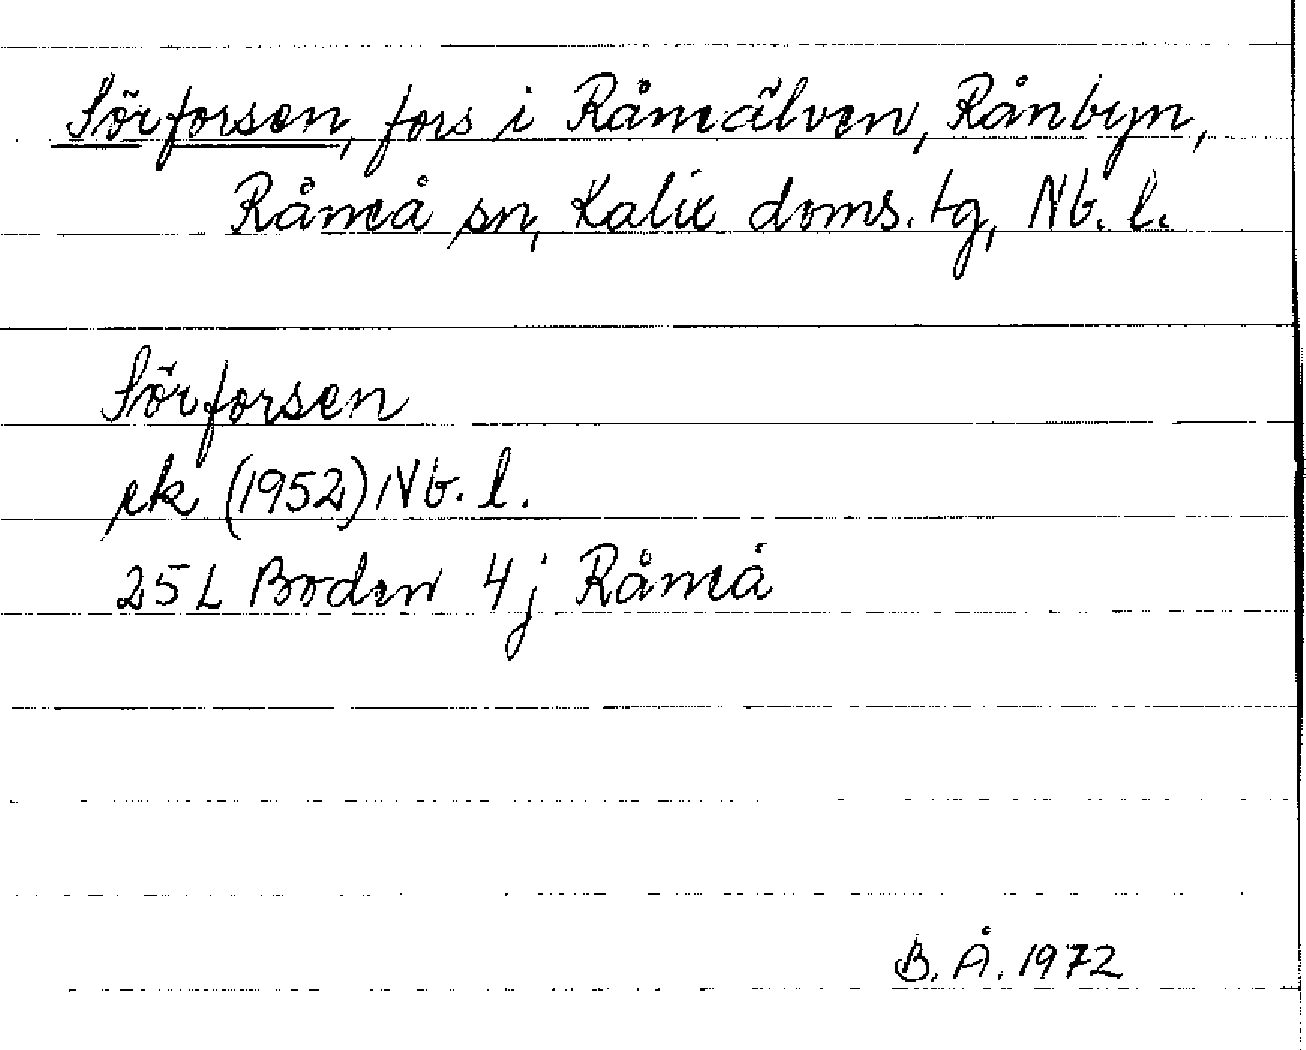 Sörforsen, fors i Råneälven, Rånbyn,
Råneå sn, Kalix doms. tg, Nb. l.
Sörforsen
ek (1952) Nb. l.
25 L Boden 4 j Råneå
B. Å. 1972